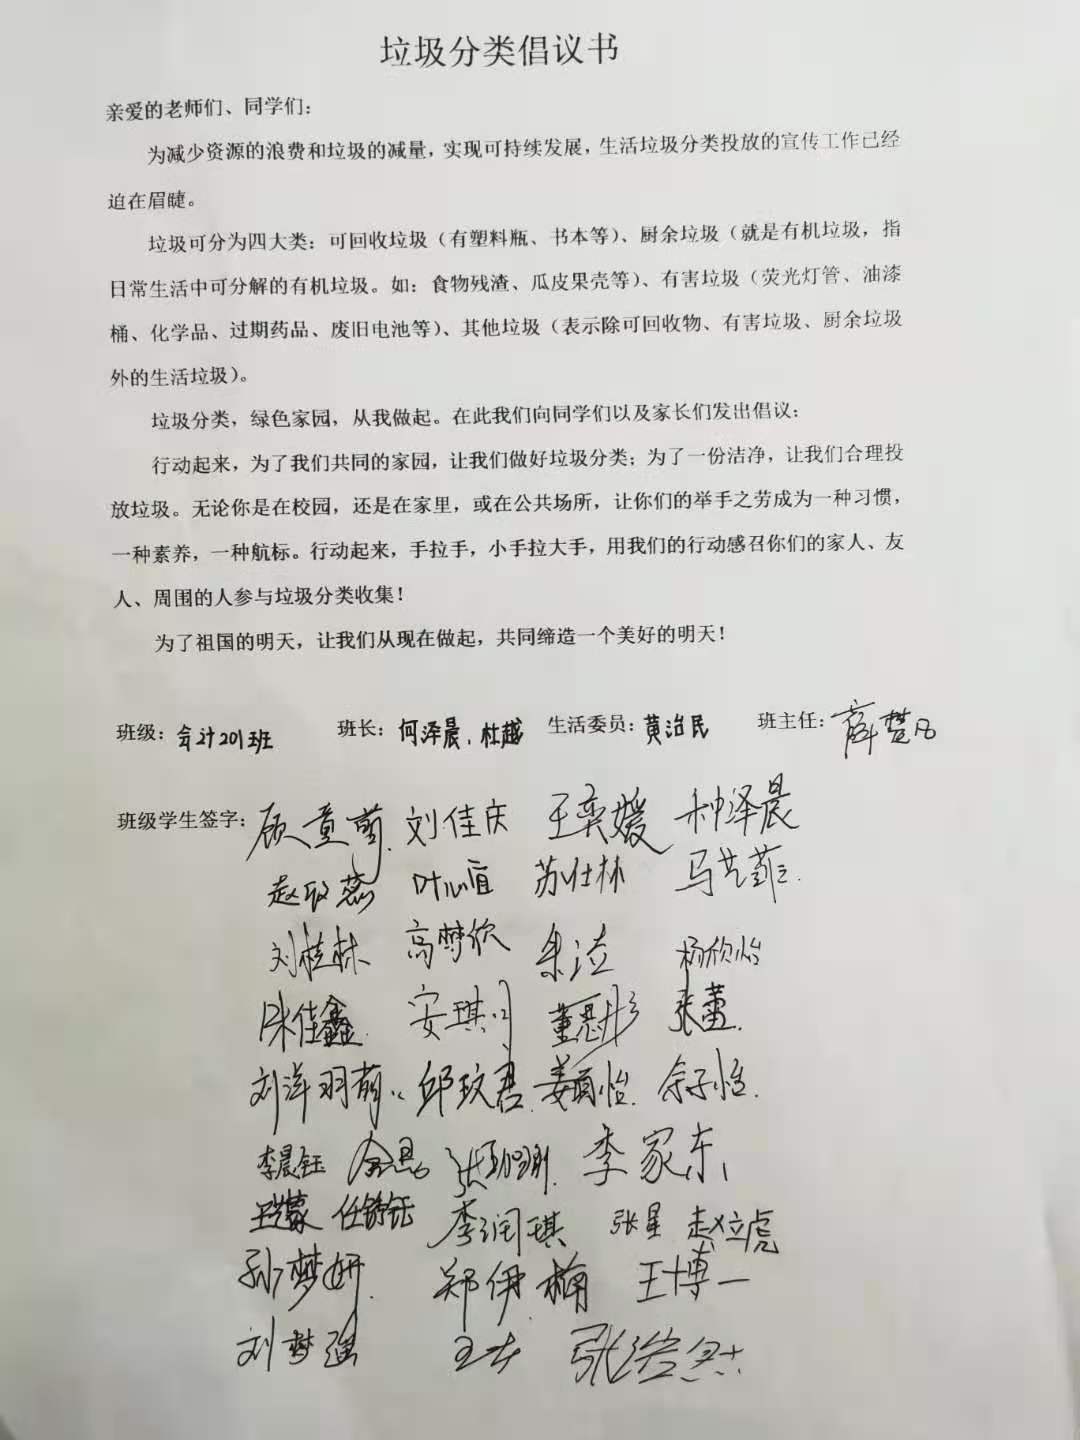 垃圾分类倡议书
亲爱的老师们、同学们：
为减少资源的浪费和垃圾的减量，实现可持续发展，生活垃圾分类投放的宣传工作已经
迫在眉睫。
垃圾可分为四大类：可回收垃圾（有塑料瓶、书本等）、厨余垃圾（就是有机垃圾，指
日常生活中可分解的有机垃圾。如：食物残渣、瓜皮果壳等）、有害垃圾（荧光灯管、油漆
桶、化学品、过期药品、废旧电池等）、其他垃圾（表示除可回收物、有害垃圾、厨余垃圾
外的生活垃圾）。
垃圾分类，绿色家园，从我做起。在此我们向同学们以及家长们发出倡议：
行动起来，为了我们共同的家园，让我们做好垃圾分类；为了一份洁净，让我们合理投
放垃圾。无论你是在校园，还是在家里，或在公共场所，让你们的举手之劳成为一种习惯，
一种素养，一种航标。行动起来，手拉手，小手拉大手，用我们的行动感召你们的家人、友
人、周围的人参与垃圾分类收集！
为了祖国的明天，让我们从现在做起，共同缔造一个美好的明天！
班级：会计201班 班长：何泽晨、杜越 生活委员：黄治民 班主任：薛楚凡
班级学生签字： 刘佳庆 王奕媛 钟泽晨
苏仕林
刘桂林 高梦欣 杨欣怡
张佳鑫 安琪 董思彤 张蕾
刘洋羽萌 邱玟君 余子怡
李晨钰 李家东
李润琪 张星 赵立虎
孙梦妍 郑伊楠 王博一
刘梦瑶 张浩然